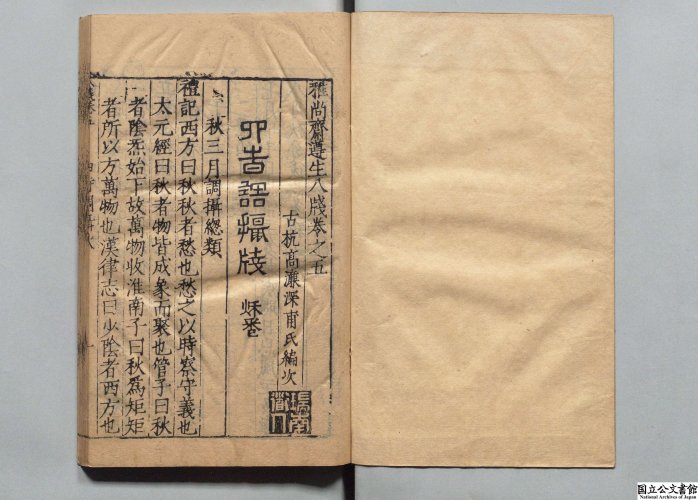 雅尚齋遵生八牋卷之五
古杭高濂深甫氏編次
瑞南道人
四時調攝牋 秋卷
秋三月調攝總類
禮記西方曰秋秋者愁也愁之以時察守義也
太元經曰秋者物皆成象而聚也管子曰秋
者陰炁始下故萬物收淮南子曰秋爲矩矩
者所以方萬物也漢律志曰少陰者西方也
国立公文書館
National Archives of Japan